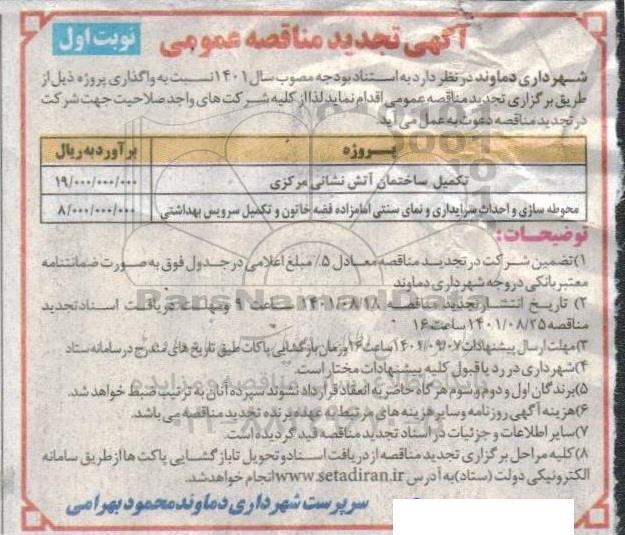 آگهی تجدید مناقصه عمومی
نوبت اول
شهرداری دماوند در نظر دارد به استناد بودجه مصوب سال ۱۴۰۱ نسبت به واگذاری پروژه ذیل از
طریق برگزاری تجدید مناقصه عمومی اقدام نماید لذا از کلیه شرکت های واجد صلاحیت جهت شرکت
در تجدید مناقصه دعوت به عمل می آید
پروژه برآورد به ریال
تکمیل ساختمان آتش نشانی مرکزی ۱۹/۰۰۰/۰۰۰/۰۰۰
محوطه سازی و احداث سرایداری و نمای سنتی امامزاده فضه خاتون و تکمیل سرویس بهداشتی ۸/۰۰۰/۰۰۰/۰۰۰
توضیحات:
۱) تضمین شرکت در تجدید مناقصه معادل ۵٪ مبلغ اعلامی در جدول فوق به صورت ضمانتنامه
معتبر بانکی در وجه شهرداری دماوند
۲) تاریخ انتشار تجدید مناقصه ۱۴۰۱/۰۸/۱۸ ساعت ۹ ومهلت دریافت اسناد تجدید
مناقصه ۱۴۰۱/۰۸/۲۵ ساعت ۱۶
۳) مهلت ارسال پیشنهادات ۱۴۰۱/۰۹/۰۷ ساعت ۱۶ وزمان بازگشایی پاکات طبق تاریخ های مندرج در سامانه ستاد
۴) شهرداری در رد یا قبول کلیه پیشنهادات مختار است.
۵) برندگان اول و دوم و سوم هرگاه حاضر به انعقاد قرارداد نشوند سپرده آنان به ترتیب ضبط خواهد شد.
۶) هزینه آگهی روزنامه و سایر هزینه های مرتبط به عهده برنده تجدید مناقصه می باشد.
۷) سایر اطلاعات و جزئیات در اسناد تجدید مناقصه قید گردیده است.
۸) کلیه مراحل برگزاری تجدید مناقصه از دریافت اسناد و تحویل تا بازگشایی پاکت ها از طریق سامانه
الکترونیکی دولت (ستاد) به آدرس www.setadiran.ir انجام خواهد شد.
سرپرست شهرداری دماوند محمود بهرامی